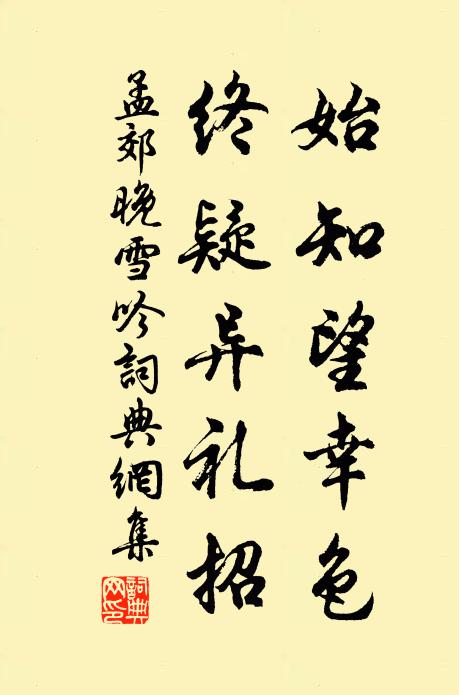 始知望幸色
终疑异礼招
孟郊晚雪吟詞典網集
詞典网印